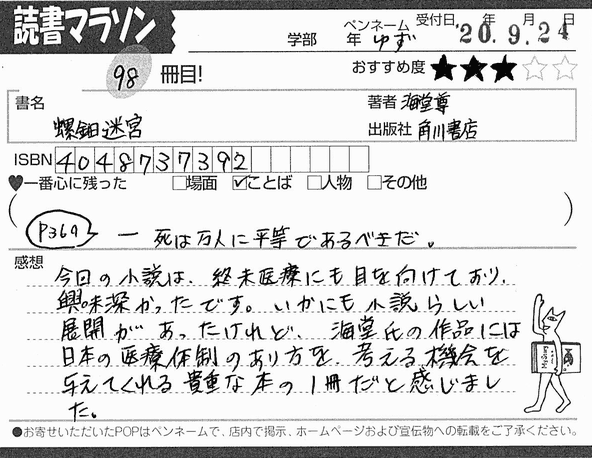 読書マラソン
学部 年
ペンネーム ゆず
受付日 '20.年9.月24日
98 冊目!
おすすめ度 ★★★☆☆
書名
螺鈿迷宮
著者 海堂尊
出版社 角川書店
ISBN 4048737392
♥一番心に残った □場面 ☑ことば □人物 □その他
P369 ― 死は万人に平等であるべきだ。
感想
今回の小説は、終末医療にも目を向けており、
興味深かったです。いかにも小説らしい
展開があったけれど、海堂氏の作品には
日本の医療体制のあり方を、考える機会を
与えてくれる貴重な本の1冊だと感じまし
た。
●お寄せいただいたPOPはペンネームで、店内で掲示、ホームページおよび宣伝物への転載をご了承ください。